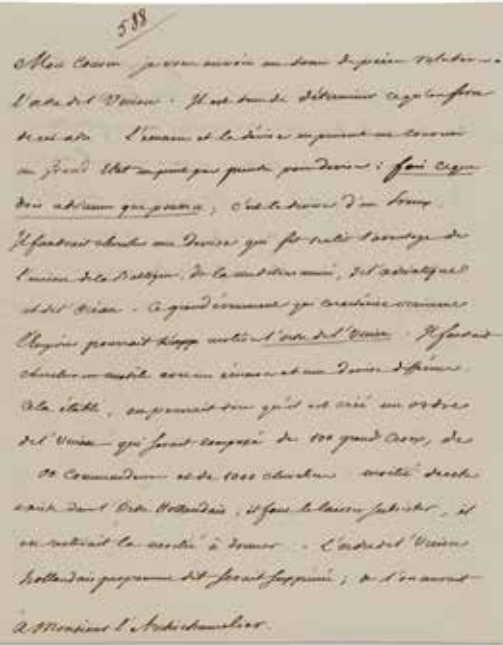 588
Mon Cousin, je vous envoie un de pièces relatives à
l'ordre de l'Union. Il est de déterminer ce qu'on fera
de cet ordre. L'écusson et la devise ne peuvent me convenir
un Grand Etat ne peut pas prendre pour devise: fais ce que
dois advienne que pourra, c'est la devise d'un
Il faudrait chercher une devise qui fit sentir l'avantage de
l'union de la Baltique, de la méditerranée, de l'adriatique
et de l'Océan. Ce grand évènement qui caractérise vraiment
l'Empire pourrait s'appeler l'ordre de l'Union. Il faudrait
chercher avec un écusson et une devise différente.
Cela établi, on pourrait dire qu'il est créé un ordre
de l'Union qui serait composé de 100 grand Croix, de
00 Commandeurs et de 1000 chevaliers moitié de cela
existe dans l'Ordre Hollandais, il faut le laisser subsister, il
en resterait la moitié à donner. L'ordre de l'Union
hollandais proprement dit serait supprimé; et l'on aurait
à Monsieur l'Archichancelier.